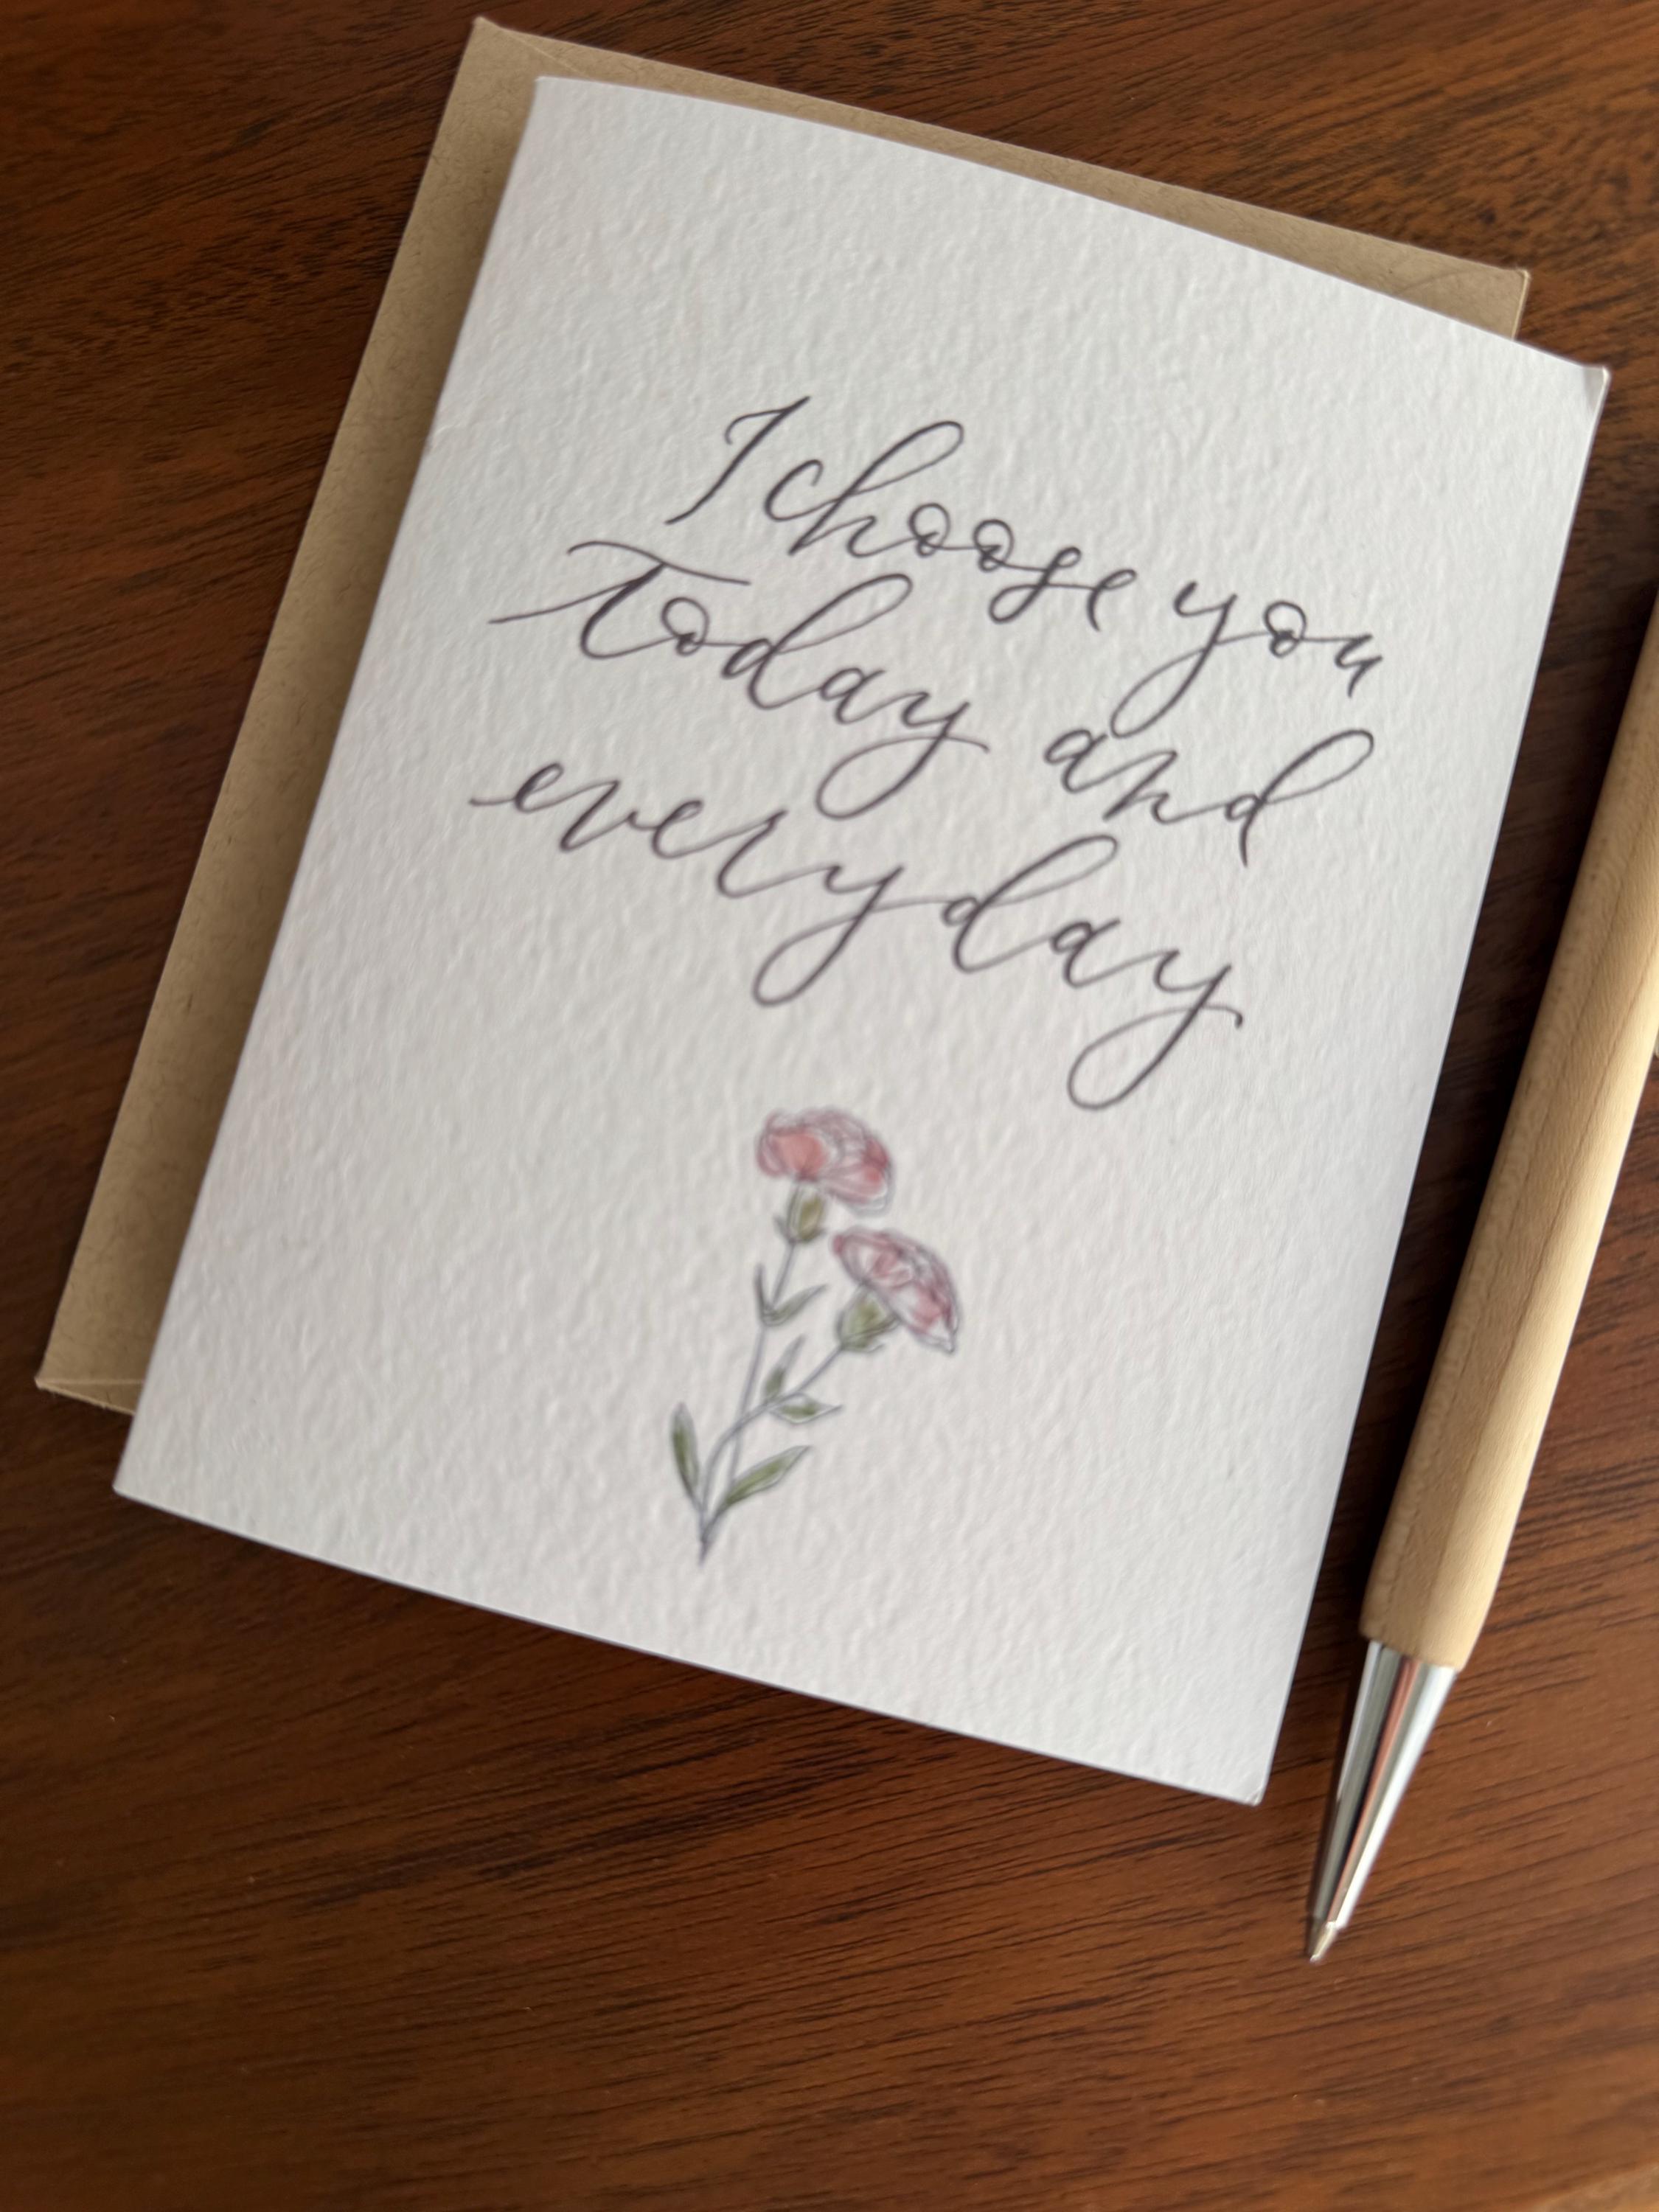 I choose you
Today and
everyday